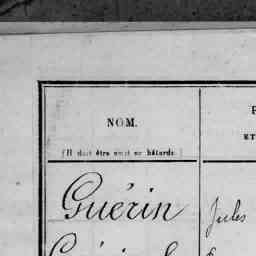 NOM.
(Il doit être écrit en bâtarde.)
Guérin Jules